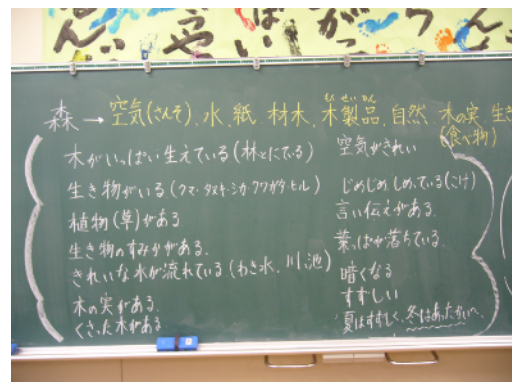 森→空気(さんそ)、水、紙、材木、木製品、自然、木の実、生き
もくせいひん
(食べ物)
木がいっぱい生えている(林とにている)
生き物がいる(クマ・タヌキ・シカ・クワガタ・ヒル)
植物(草)がある
生き物のすみかがある。
きれいな水が流れている(わき水、川、池)
木の実がある
くさった木がある
空気がきれい
じめじめしめっている(こけ)
言い伝えがある。
葉っぱが落ちている。
暗くなる
すずしい
夏はすずしく、冬はあったかい